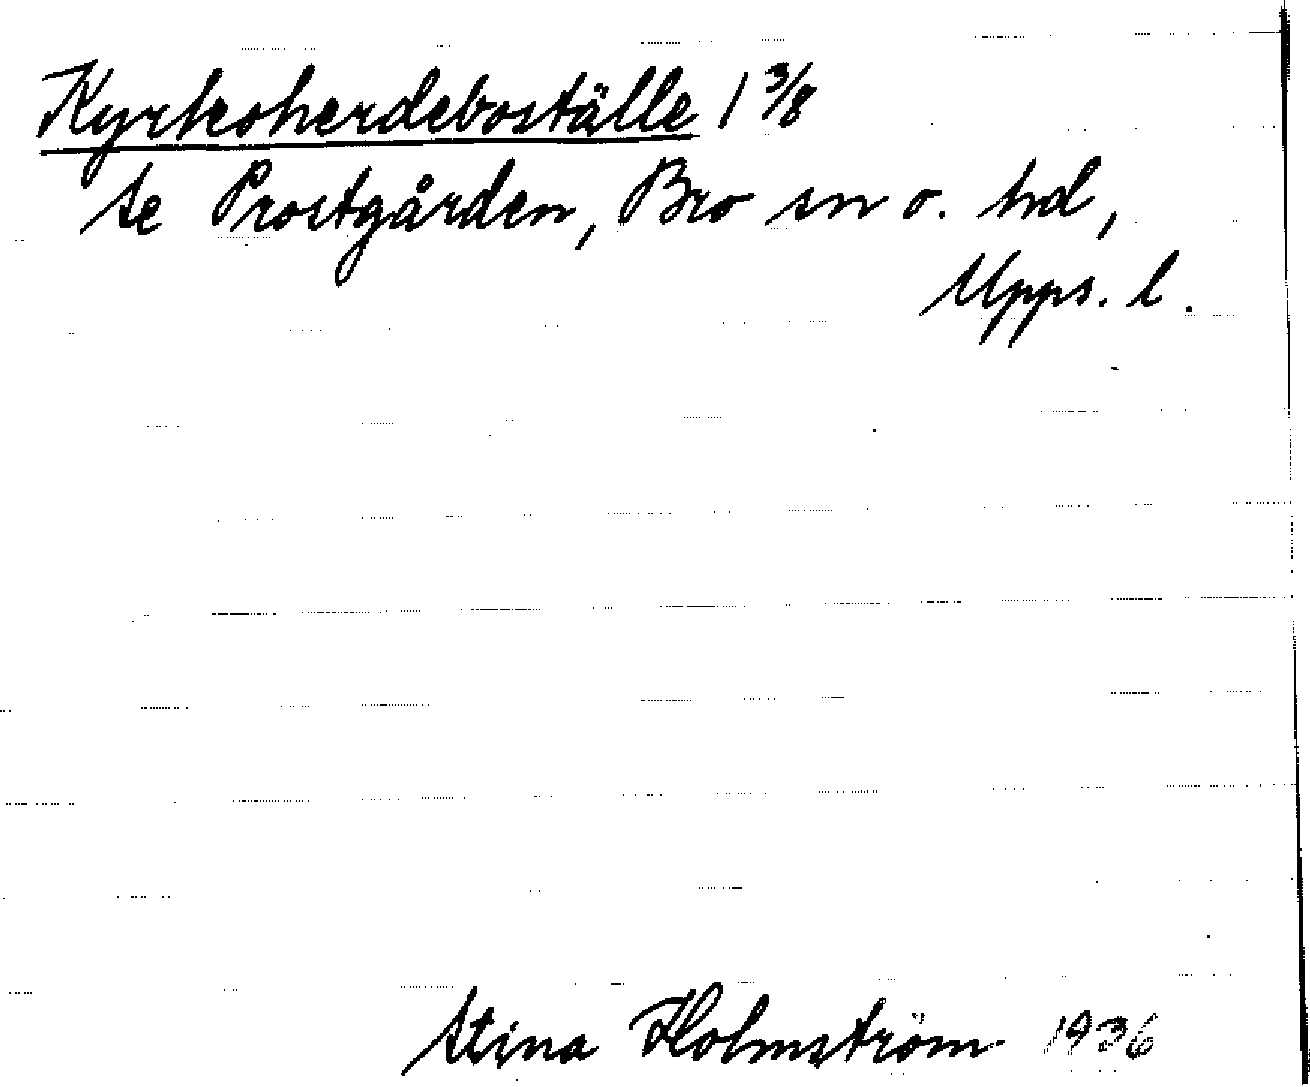 Kyrkoherdeboställe 1 3/8
se Prostgården, Bro sn o. hd,
Upps. l.
Stina Holmström 1936